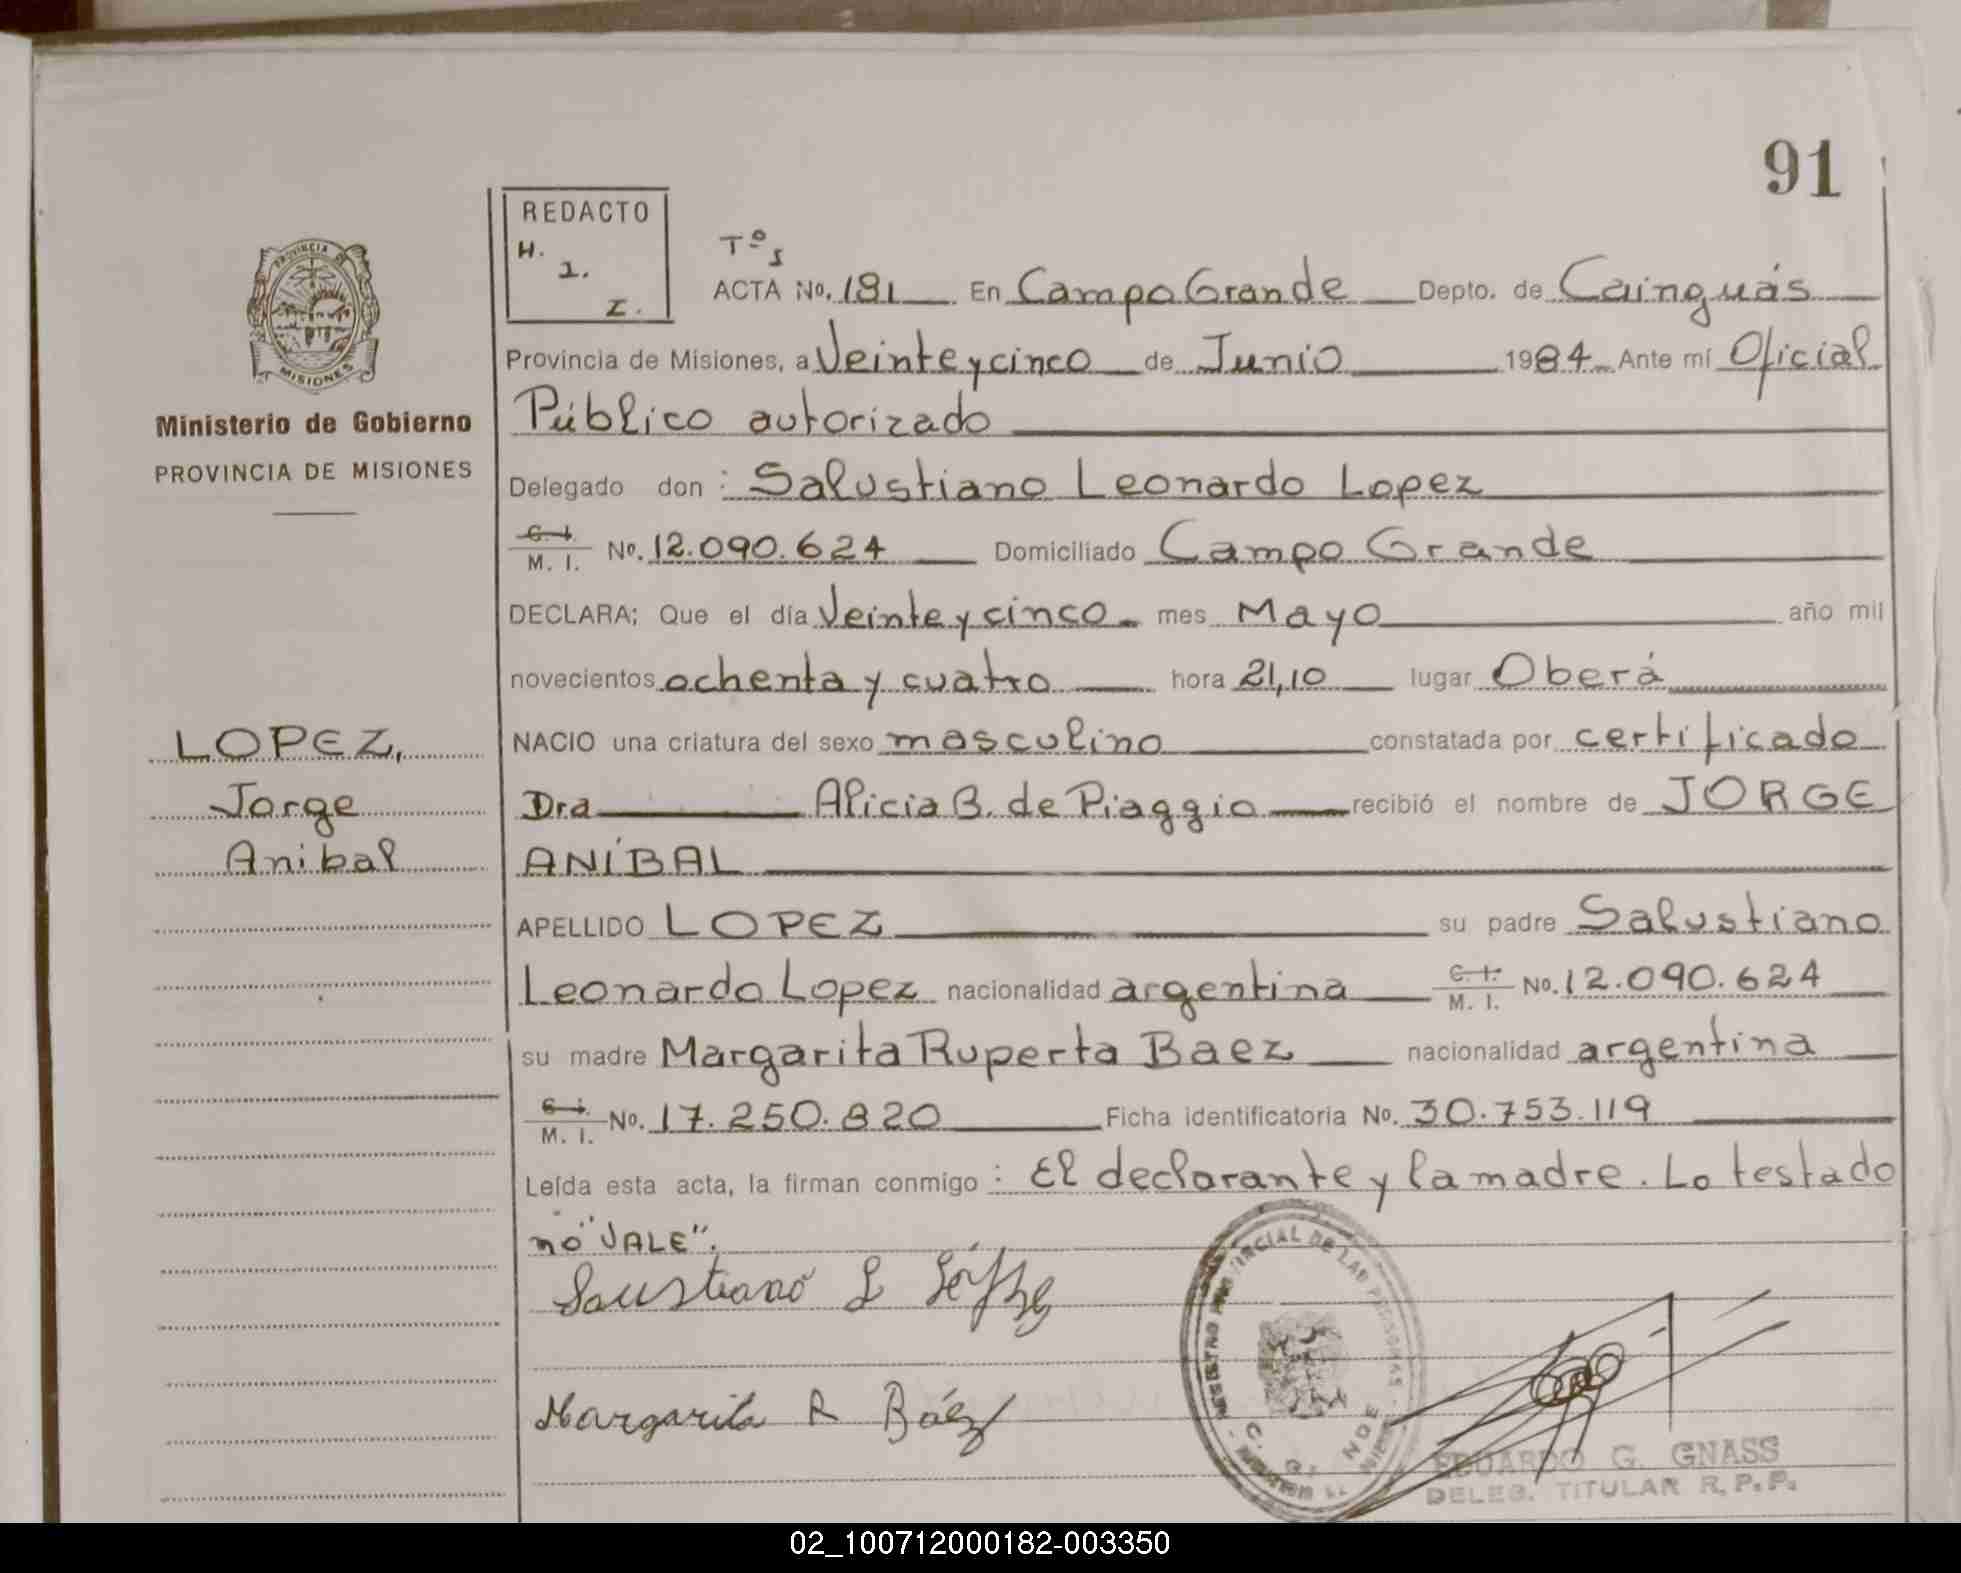 91
REDACTO
H.
1.
Z.
Tº I
ACTA Nº. 181 En Campo Grande Depto. de Cainguás
Provincia de Misiones, a Veinte y cinco de Junio 1984 Ante mí Oficial
Público autorizado
Delegado don : Salustiano Leonardo Lopez
C. I.
M. I. Nº. 12.090.624 Domiciliado Campo Grande
DECLARA; Que el día Veinte y cinco mes Mayo año mil
novecientos ochenta y cuatro hora 21,10 lugar Oberá
NACIO una criatura del sexo masculino constatada por certificado
Dra Alicia B. de Piaggio recibió el nombre de JORGE
ANÍBAL
APELLIDO LOPEZ su padre Salustiano
Leonardo Lopez nacionalidad argentina C. I. M. I. Nº. 12.090.624
su madre Margarita Ruperta Baez nacionalidad argentina
C. I.
M. I. Nº. 17.250.820 Ficha identificatoria Nº. 30.753.119
Leída esta acta, la firman conmigo : El declarante y la madre. Lo testado
no "VALE".
Margarita R Báez
EDUARDO G. GNASS
DELEG. TITULAR R.P.P.
PROVINCIA DE
MISIONES
Ministerio de Gobierno
PROVINCIA DE MISIONES
LOPEZ,
Jorge
Anibal
REGISTRO PROVINCIAL DE LAS PERSONAS
02_100712000182-003350